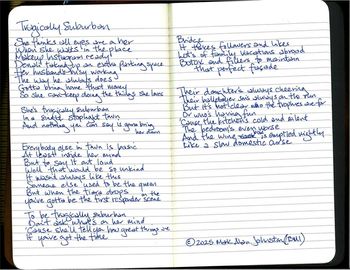 Tragically Suburban
She thinks all eyes are on her
When she walks in the place
Makeup Instagram ready!
Donald taking up an extra parking space
Her husband's busy working
The way he always does
Gotta bring home that money
So she can keep doing the things she loves
She's tragically suburban
In a stoplight town
And nothing you can say is gonna bring her down
Everybody else in town is basic
At least inside her mind
But to say it out loud
Well that would be so unkind
It wasn't always like this
Someone else used to be the queen
But when the tiara drops
you've gotta be the first responder on the scene
To be tragically suburban
Don't ask what's on her mind
'Cause she'll tell you her great things are
If you've got the time
Bridge
It takes followers and likes
Lots of family vacations abroad
Botox and fillers to maintain
that perfect facade
Their daughter's always cheering
Their son's always on the run
But it's not clear who the trophies are for
Or who's having fun
'Cause the kitchen's cold and silent
The bedroom's even worse
And the wine is emptied nightly
Like a slow domestic curse
©2025 Mark Alan Johnston (BMI)